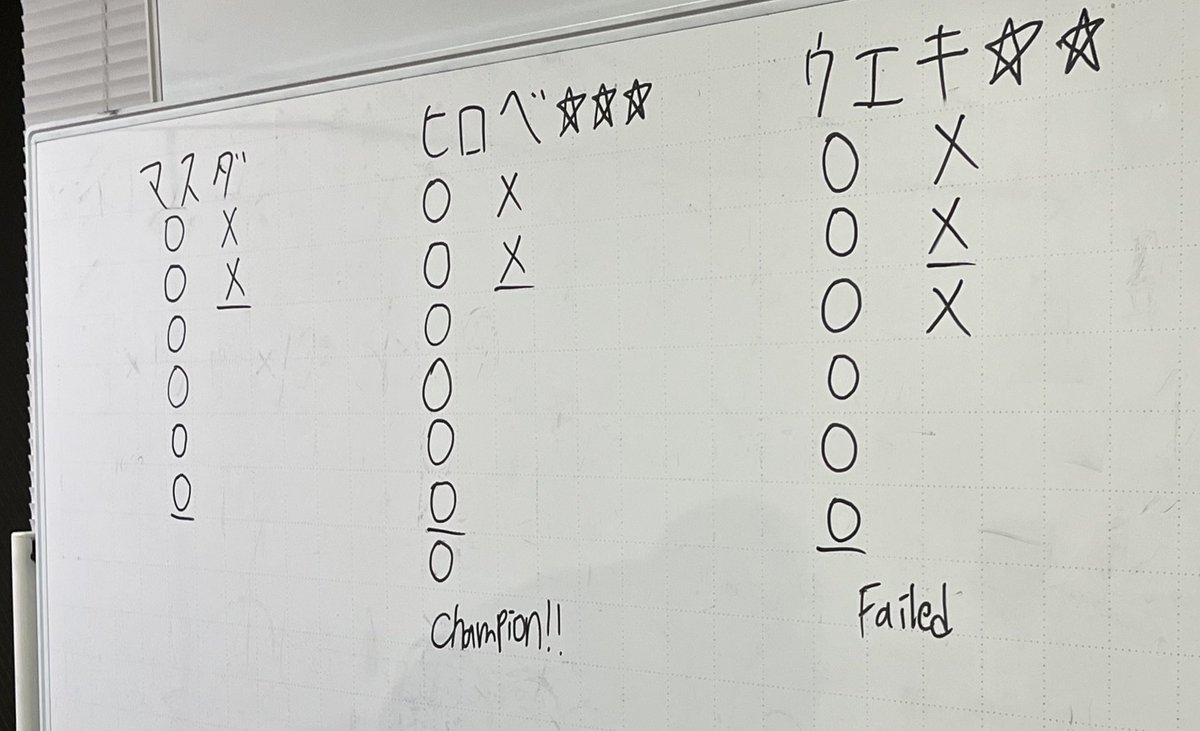 マスダ
O X
O X
O
O
O
O
ヒロベ☆☆☆
O X
O X
O
O
O
O
O
Champion!!
ウエキ☆☆
O X
O X
O X
O
O
O
Failed